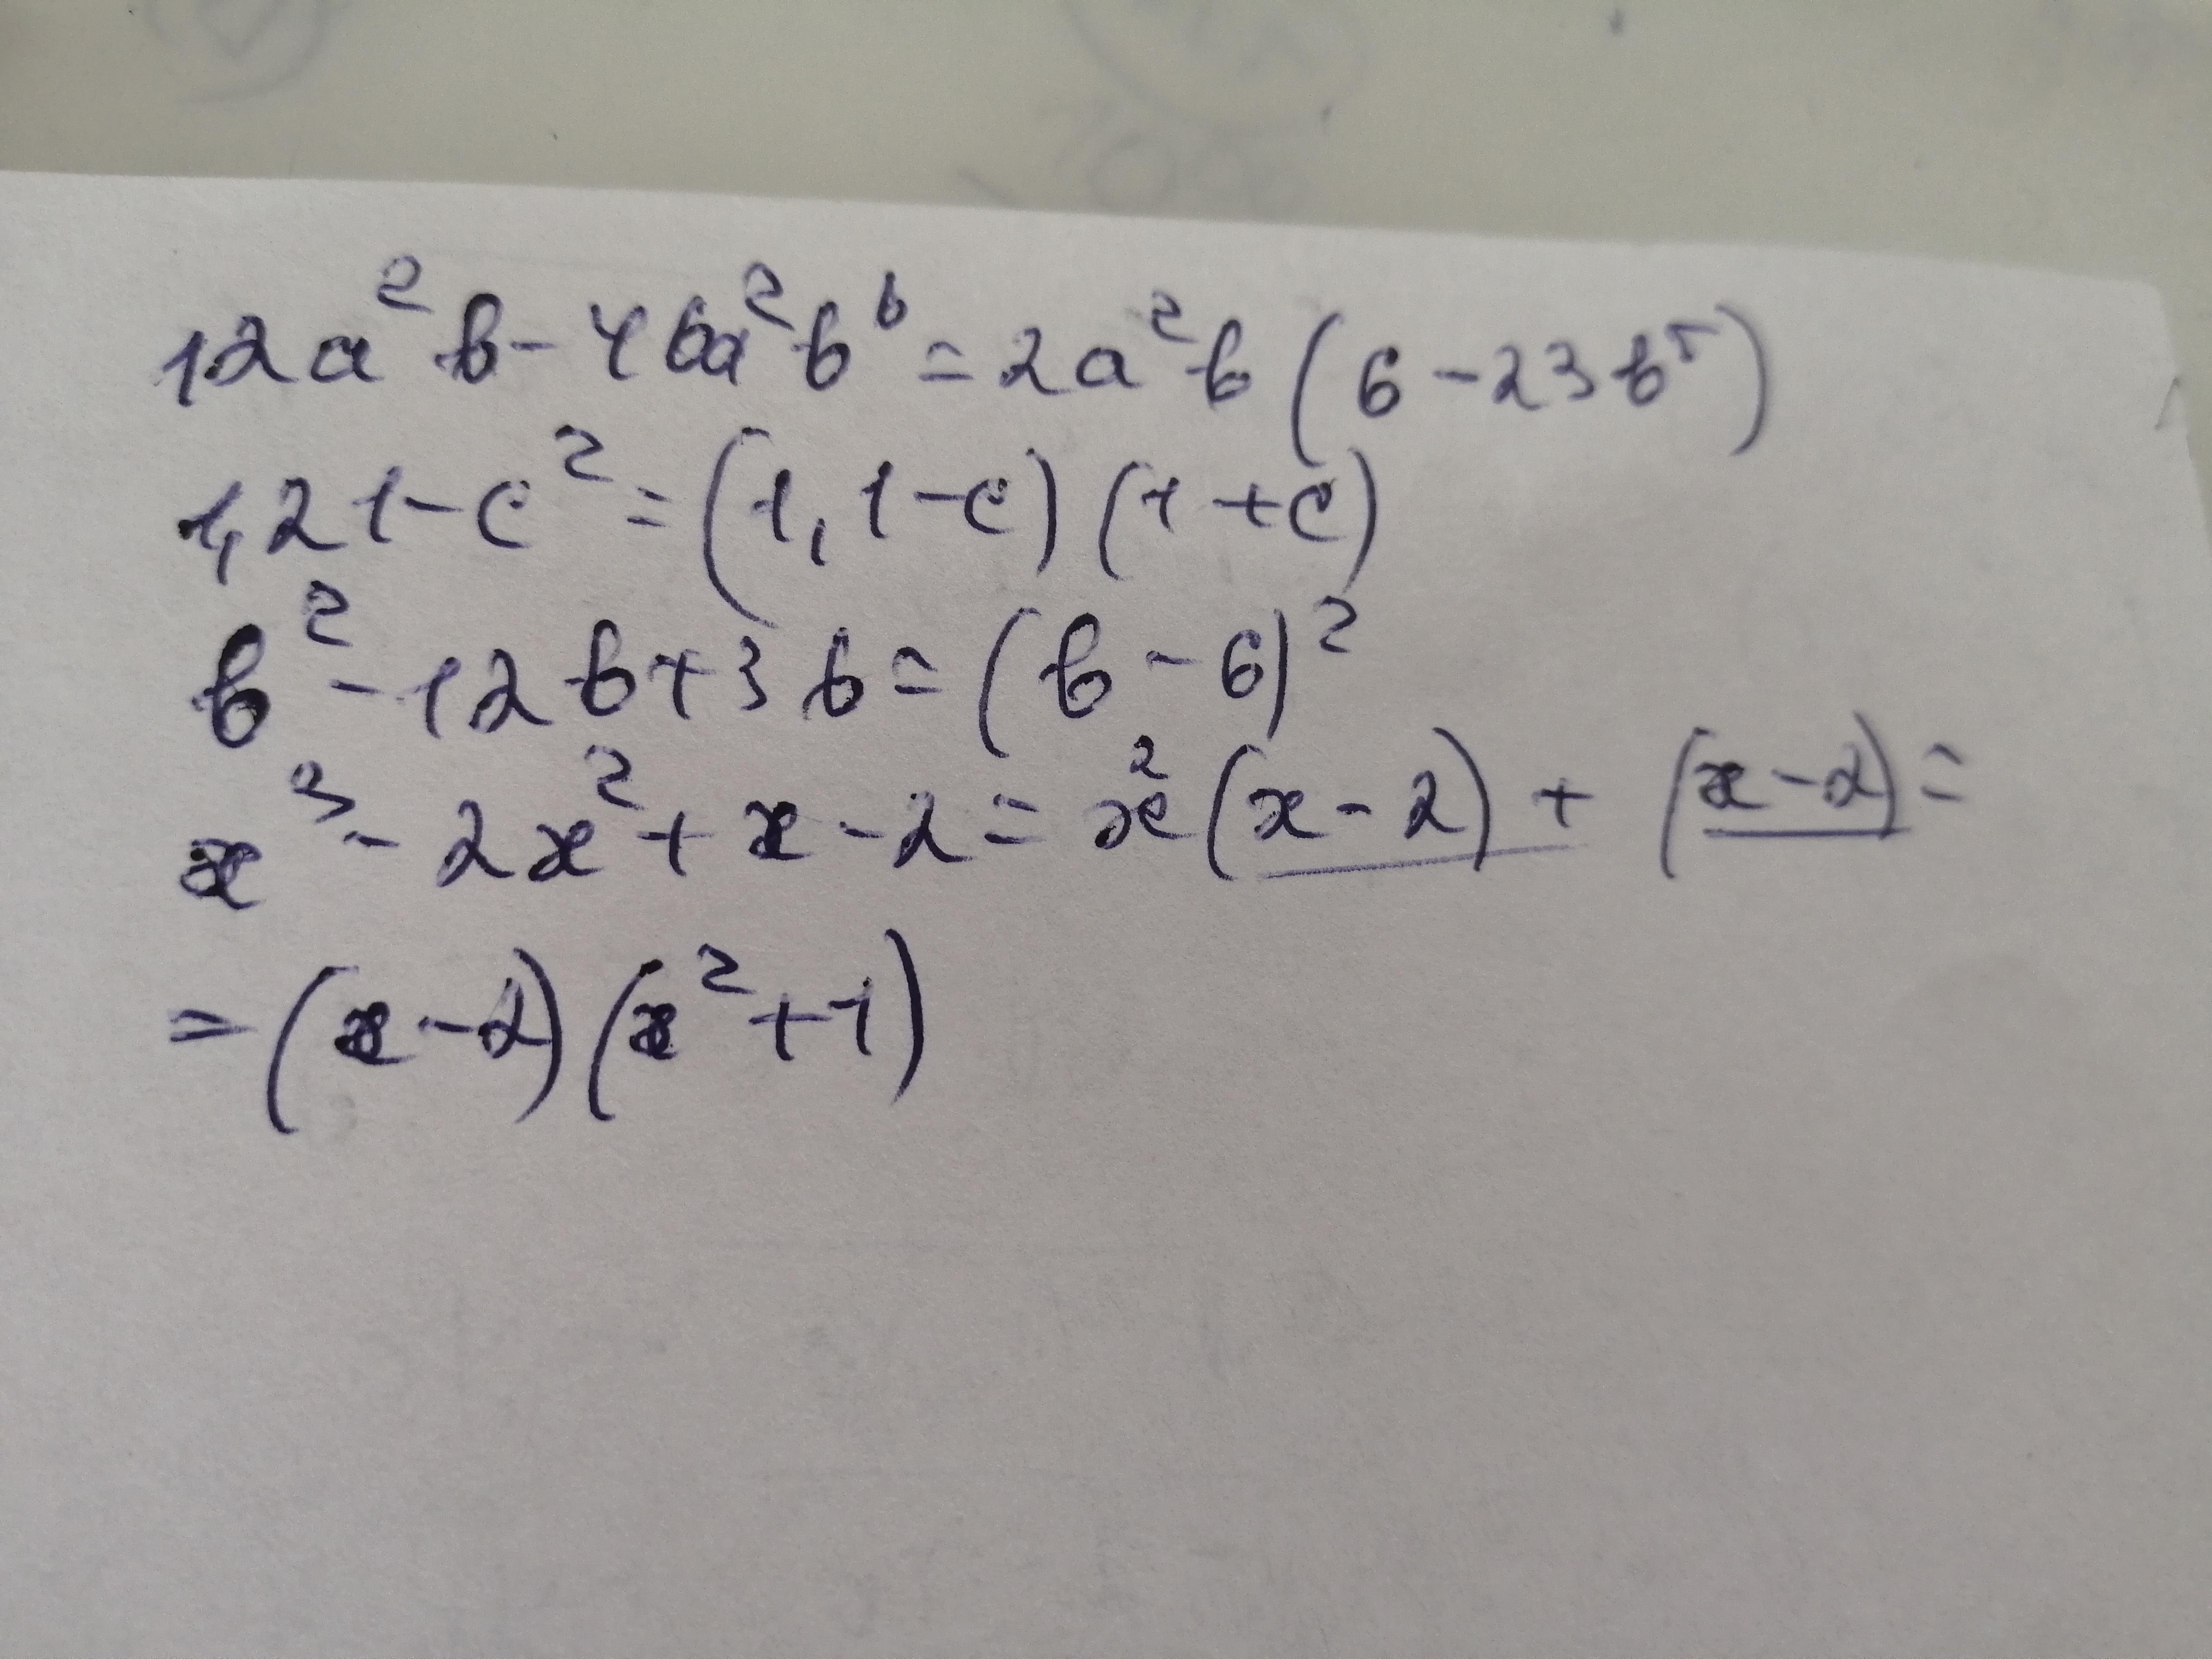 12a²b-46a²b⁶=2a²b(6-23b⁵)
1,21-c²=(1,1-c)(1+c)
b²-12b+36=(b-6)²
x³-2x²+x-2=x²(x-2)+(x-2)=
=(x-2)(x²+1)